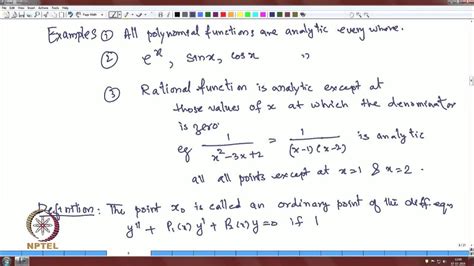 Examples ① All polynomial functions are analytic every where.
② e^x, sinx, cosx "
③ Rational function is analytic except at
those values of x at which the denominator
is zero
eg 1/(x²-3x+2) = 1/((x-1)(x-2)) is analytic
all all points except at x=1 & x=2.
Definition: The point x₀ is called an ordinary point of the diff. eqn
y'' + P₁(x) y' + P₂(x) y = 0 if
NPTEL